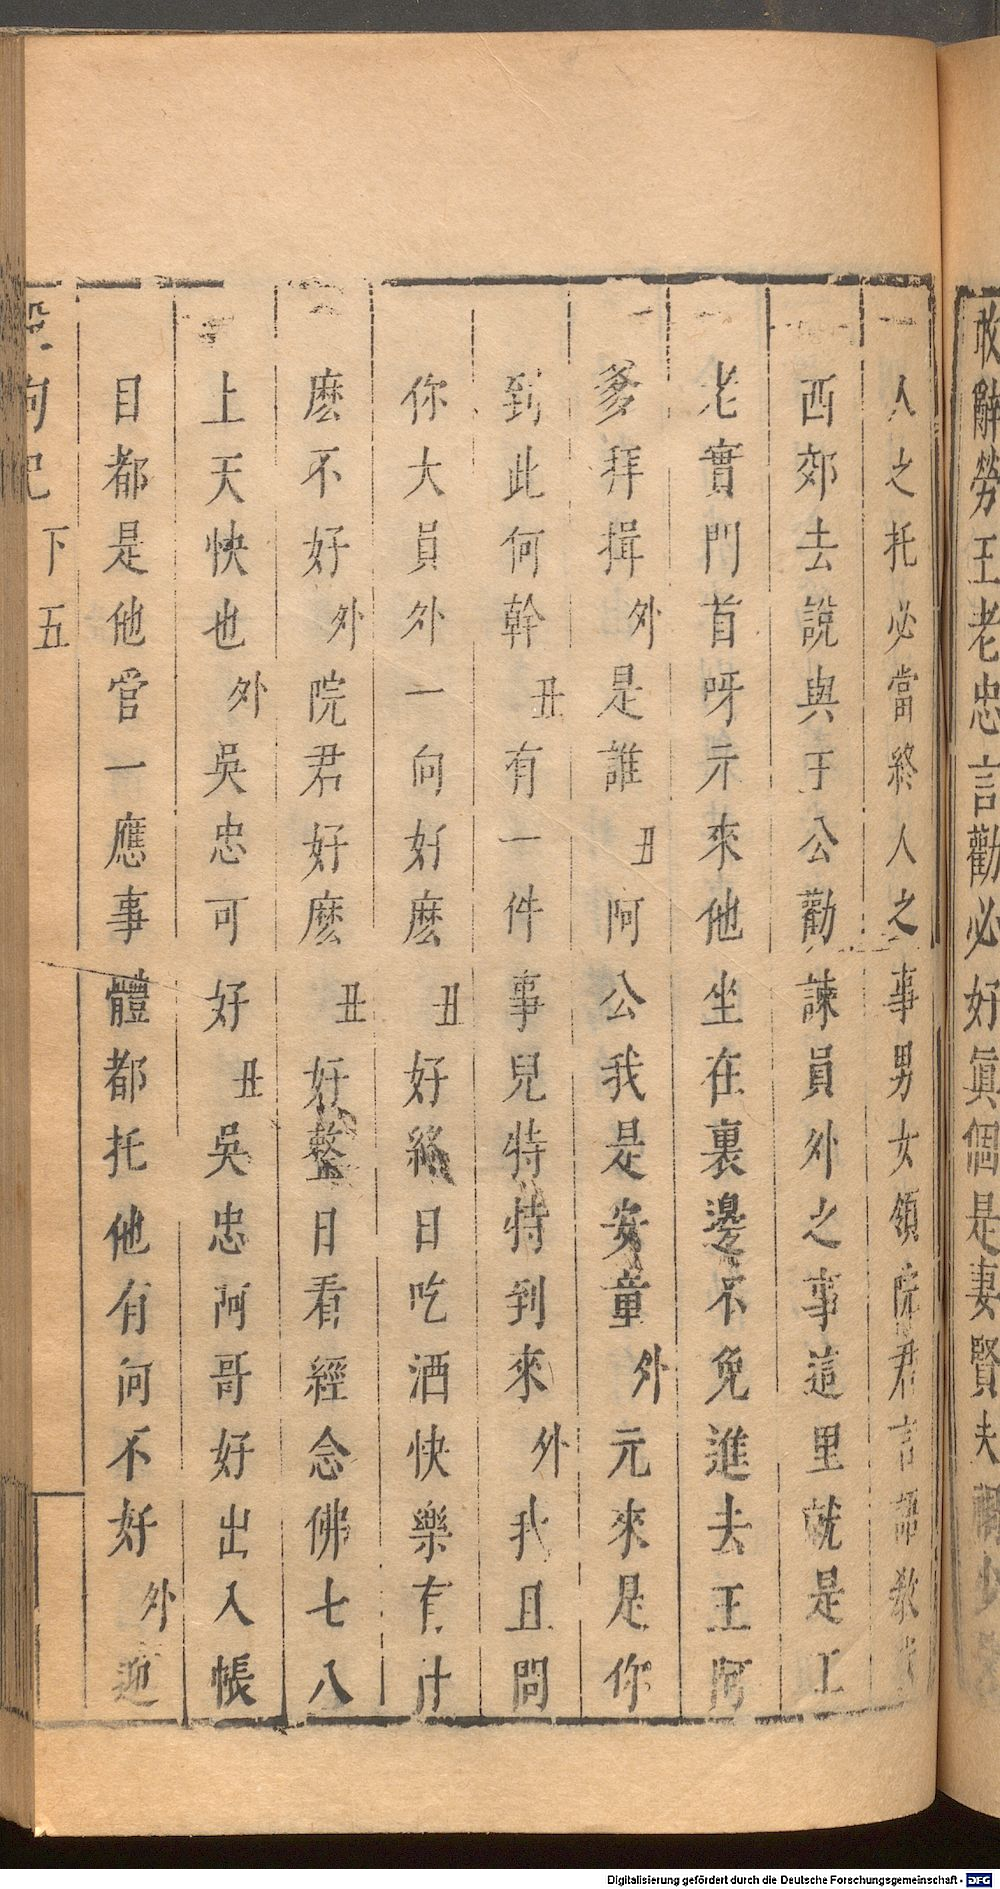 敢辭勞王老忠言勸必好眞個是妻賢夫禍少
人之托必當終人之事男女領院君言語敎我
西郊去說與王公勸諫員外之事這里就是王
老實門首呀元來他坐在裏邊不免進去王阿
爹拜揖外是誰丑阿公我是安童外元來是你
到此何幹丑有一件事兒特特到來外我且問
你大員外一向好麽丑好終日吃酒快樂有什
麽不好外院君好麽丑好整日看經念佛七八
上天快也外吳忠可好丑吳忠阿哥好出入帳
目都是他管一應事體都托他有何不好外迎
狗記 下 五
Digitalisierung gefördert durch die Deutsche Forschungsgemeinschaft - DFG